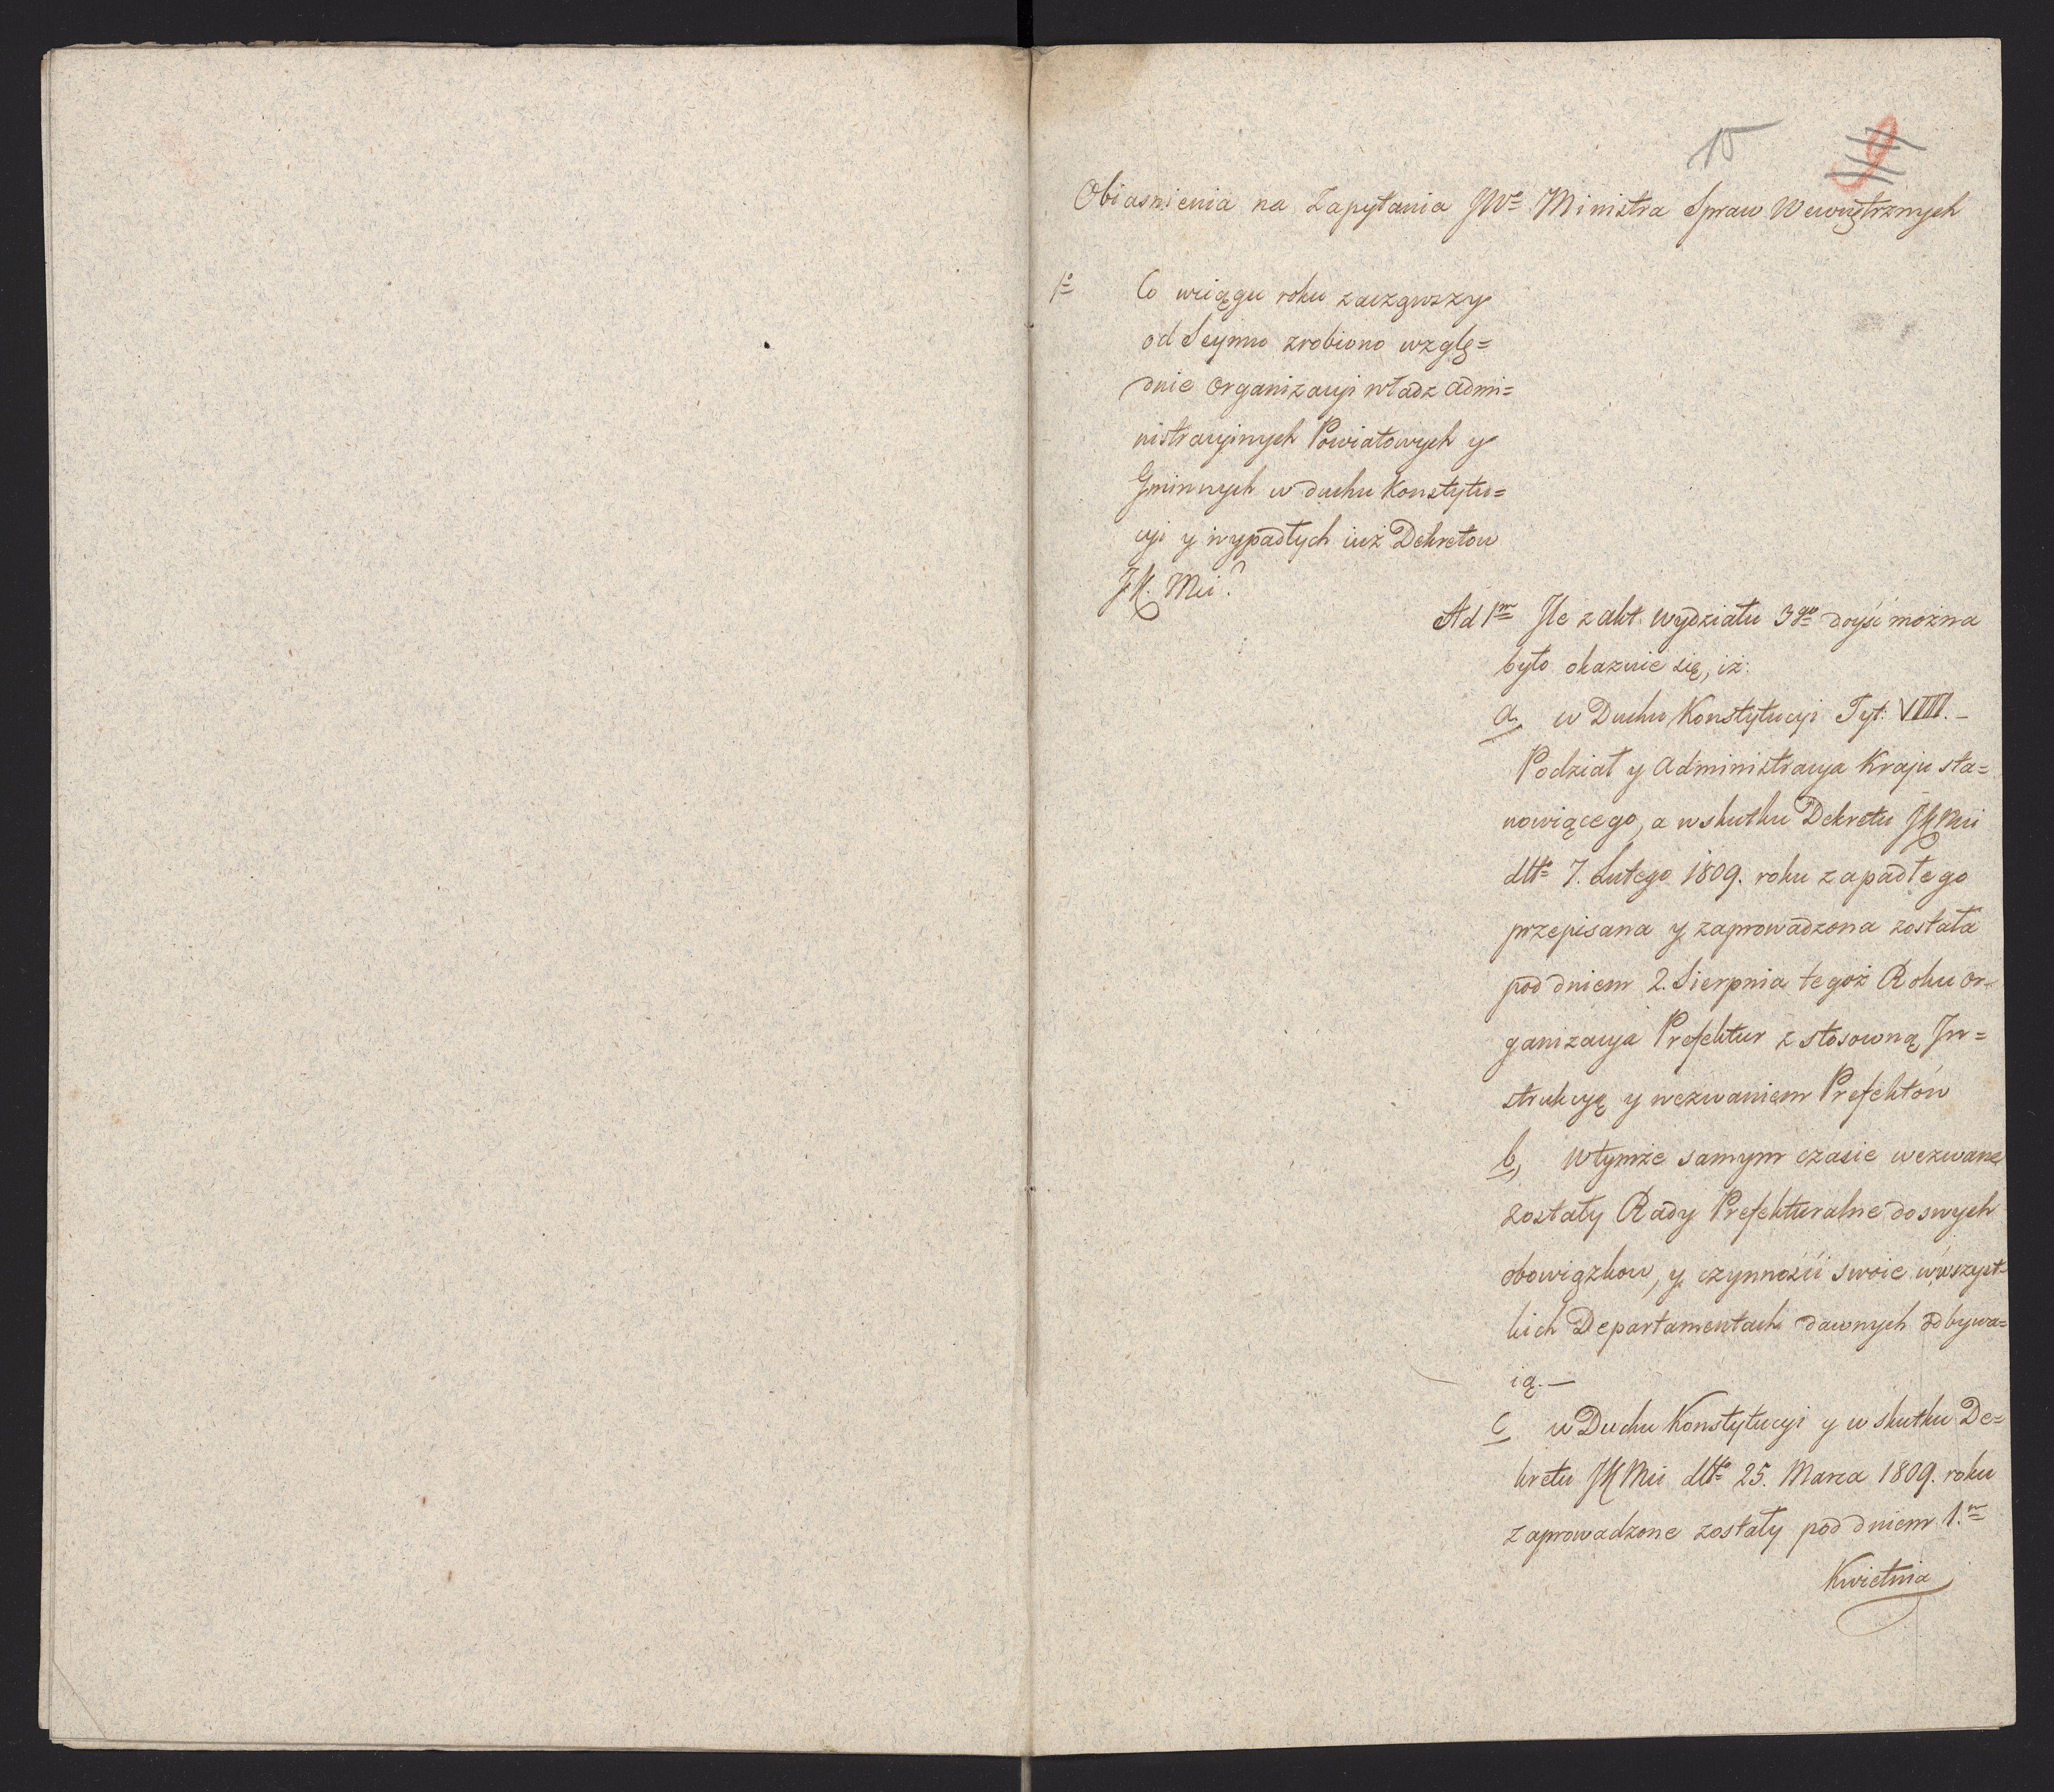 15
9
Obiasnienia na Zapytania JWo Ministra Spraw Wewnętrznych
1o Co wciągu roku zacząwszy
od Seymu zrobiono wzglę=
dnie Organizacyi władz admi=
nistracyinych Powiatowych y
Gminnych w duchu Konstytu=
cyi y wypadłych iuż Dekretow
JK. Mci?
Ad 1m Ile z akt. Wydziału 3go doyść można
było okazuie się, iż:
a, w Duchu Konstytucyi Tyt: VIIII. -
Podział y Administracya Kraju sta=
nowiącego, a wskutku Dekretu JKMci
dtto 7. Lutego 1809. roku zapadłego
przepisana y zaprowadzona została
pod dniem 2. Sierpnia tegoż Roku or=
ganizacya Prefektur z stosowną In=
strukcyą y wezwaniem Prefektów
b, Wtymże samym czasie wezwane
zostały Rady Prefekturalne do swych
obowiązkow, y czynnośći swoie wwszyst=
kich Departamentach dawnych odbywa=
ią. —
c, w Duchu Konstytucyi y w skutku De=
kretu JKMci dtto 25. Marca 1809. roku
zaprowadzone zostały pod dniem 1.m
Kwietnia